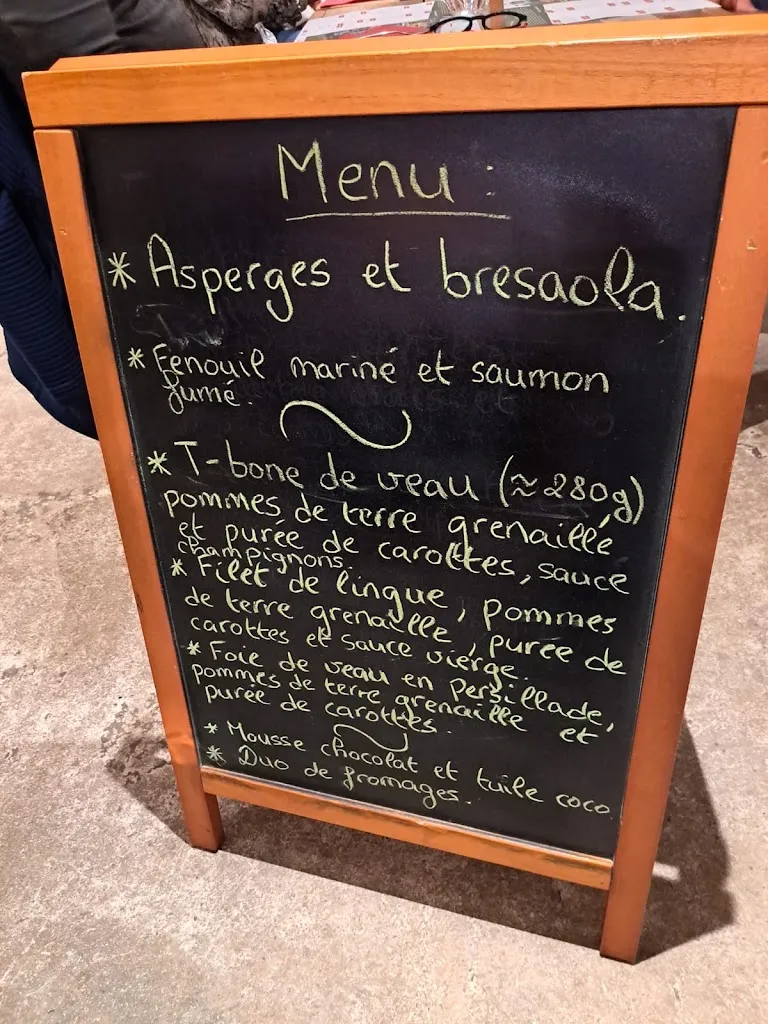 Menu :
* Asperges et bresaola.
* Fenouil mariné et saumon
fumé.
* T-bone de veau (≈280g)
pommes de terre grenaille
et purée de carottes, sauce
champignons.
* Filet de lingue, pommes
de terre grenaille, purée de
carottes et sauce vierge.
* Foie de veau en persillade,
pommes de terre grenaille et
purée de carottes.
* Mousse chocolat et tuile coco
* Duo de fromages.